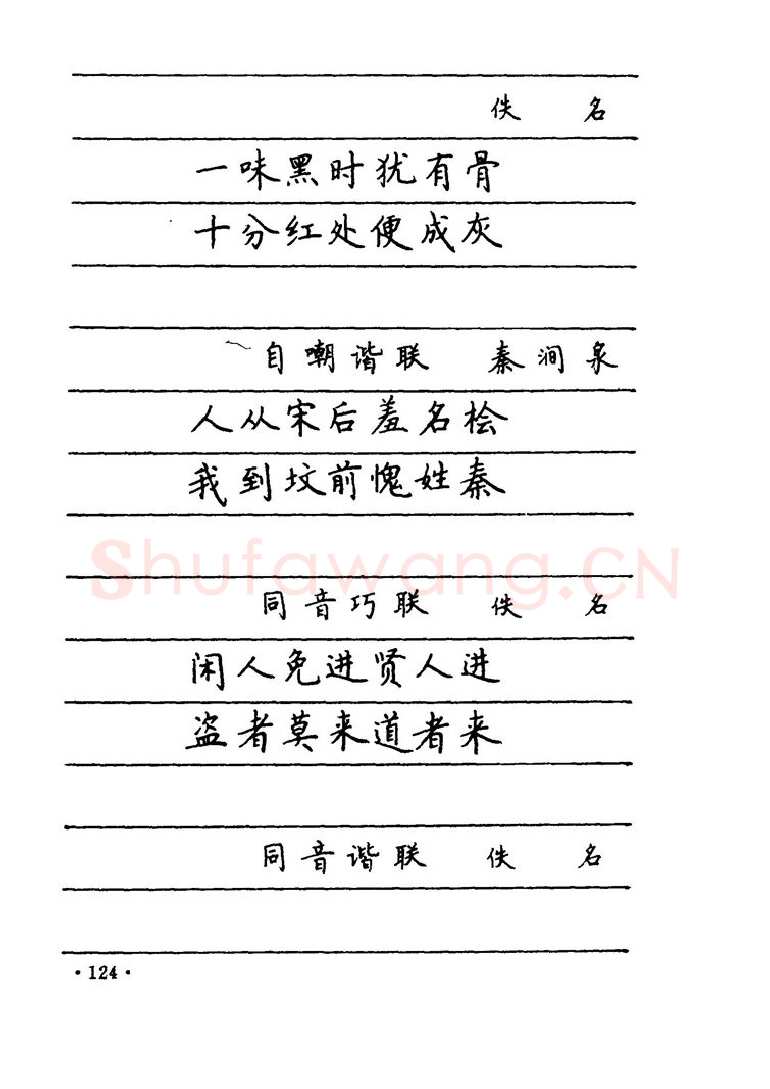 佚 名
一味黑时犹有骨
十分红处便成灰
自嘲谐联 秦涧泉
人从宋后羞名桧
我到坟前愧姓秦
Shufawang.CN
同音巧联 佚 名
闲人免进贤人进
盗者莫来道者来
同音谐联 佚 名
·124·